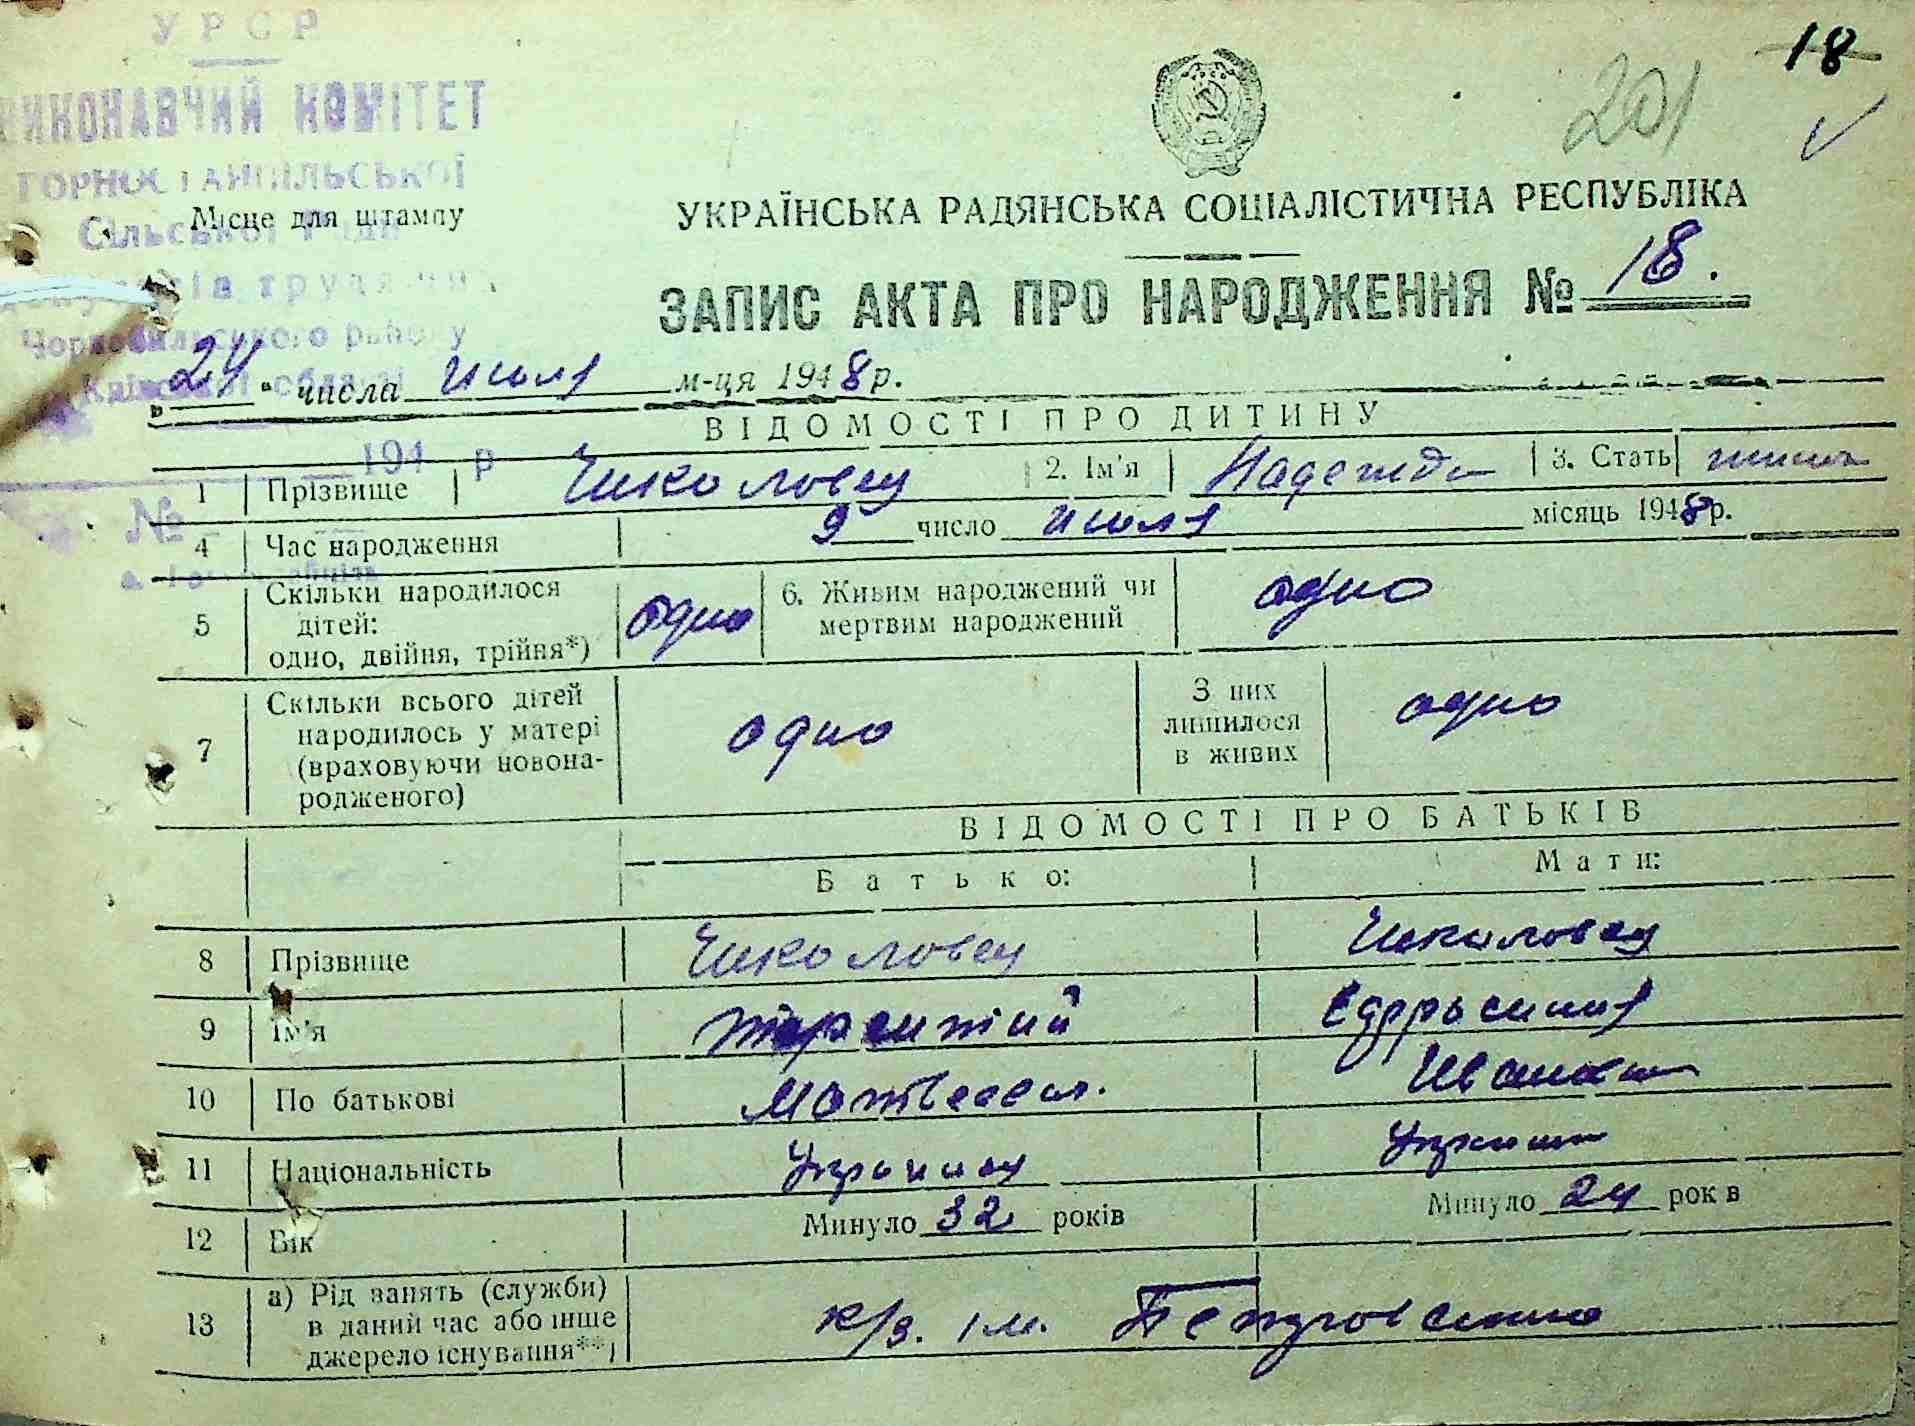 УРСР
ВИКОНАВЧИЙ КОМІТЕТ
ГОРНОСТАЙПІЛЬСЬКОЇ
Сільської Ради
депутатів трудящих
Чорнобильського району
Київської області
194 р
№
Місце для штампу
18
201
УКРАЇНСЬКА РАДЯНСЬКА СОЦІАЛІСТИЧНА РЕСПУБЛІКА
ЗАПИС АКТА ПРО НАРОДЖЕННЯ № 18.
24 числа июля м-ця 1948 р.
ВІДОМОСТІ ПРО ДИТИНУ
1 Прізвище Чиколовец 2. Ім'я Надежда 3. Стать
4 Час народження 9 число июля місяць 1948 р.
5 Скільки народилося дітей: одно, двійня, трійня*) одно 6. Живим народжений чи мертвим народжений одно
7 Скільки всього дітей народилось у матері (враховуючи новонародженого) одно З них лишилося в живих одно
ВІДОМОСТІ ПРО БАТЬКІВ
Батько: Мати:
8 Прізвище Чиколовец Чиколовец
9 Ім'я Терентий
10 По батькові Матвеев. Ивановн
11 Національність Украинец Украин
12 Вік Минуло 32 років Минуло 24 років
13 а) Рід занять (служби) в даний час або інше джерело існування**) к/з. им. Петровского